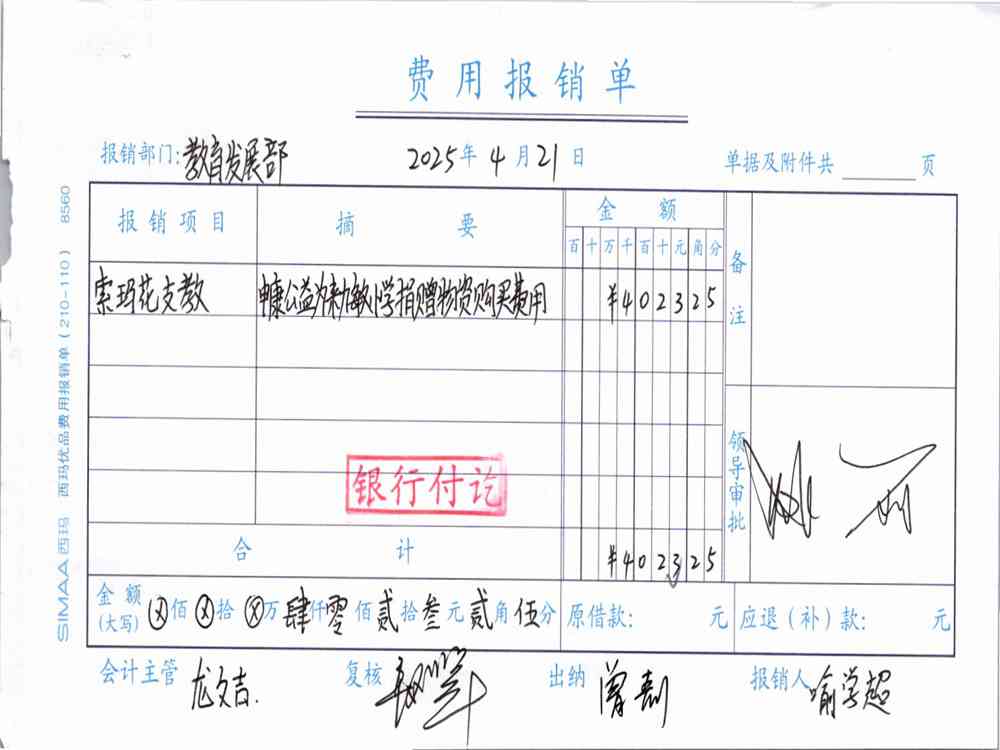 费用报销单
报销部门:教育发展部 2025年4月21日 单据及附件共 页
报销项目 摘要 金额 备注
百十万千百十元角分
索玛花支教 中康公益为来加敏小学捐赠物资购买费用 ¥402325
领导审批
银行付讫
合计 ¥402325
金额(大写) ⊗佰⊗拾⊗万肆仟零佰贰拾叁元贰角伍分 原借款: 元 应退(补)款: 元
会计主管 龙文吉. 复核 出纳 曾彪 报销人 喻学超
SIMAA 西玛 西玛优品费用报销单(210-110) 8560